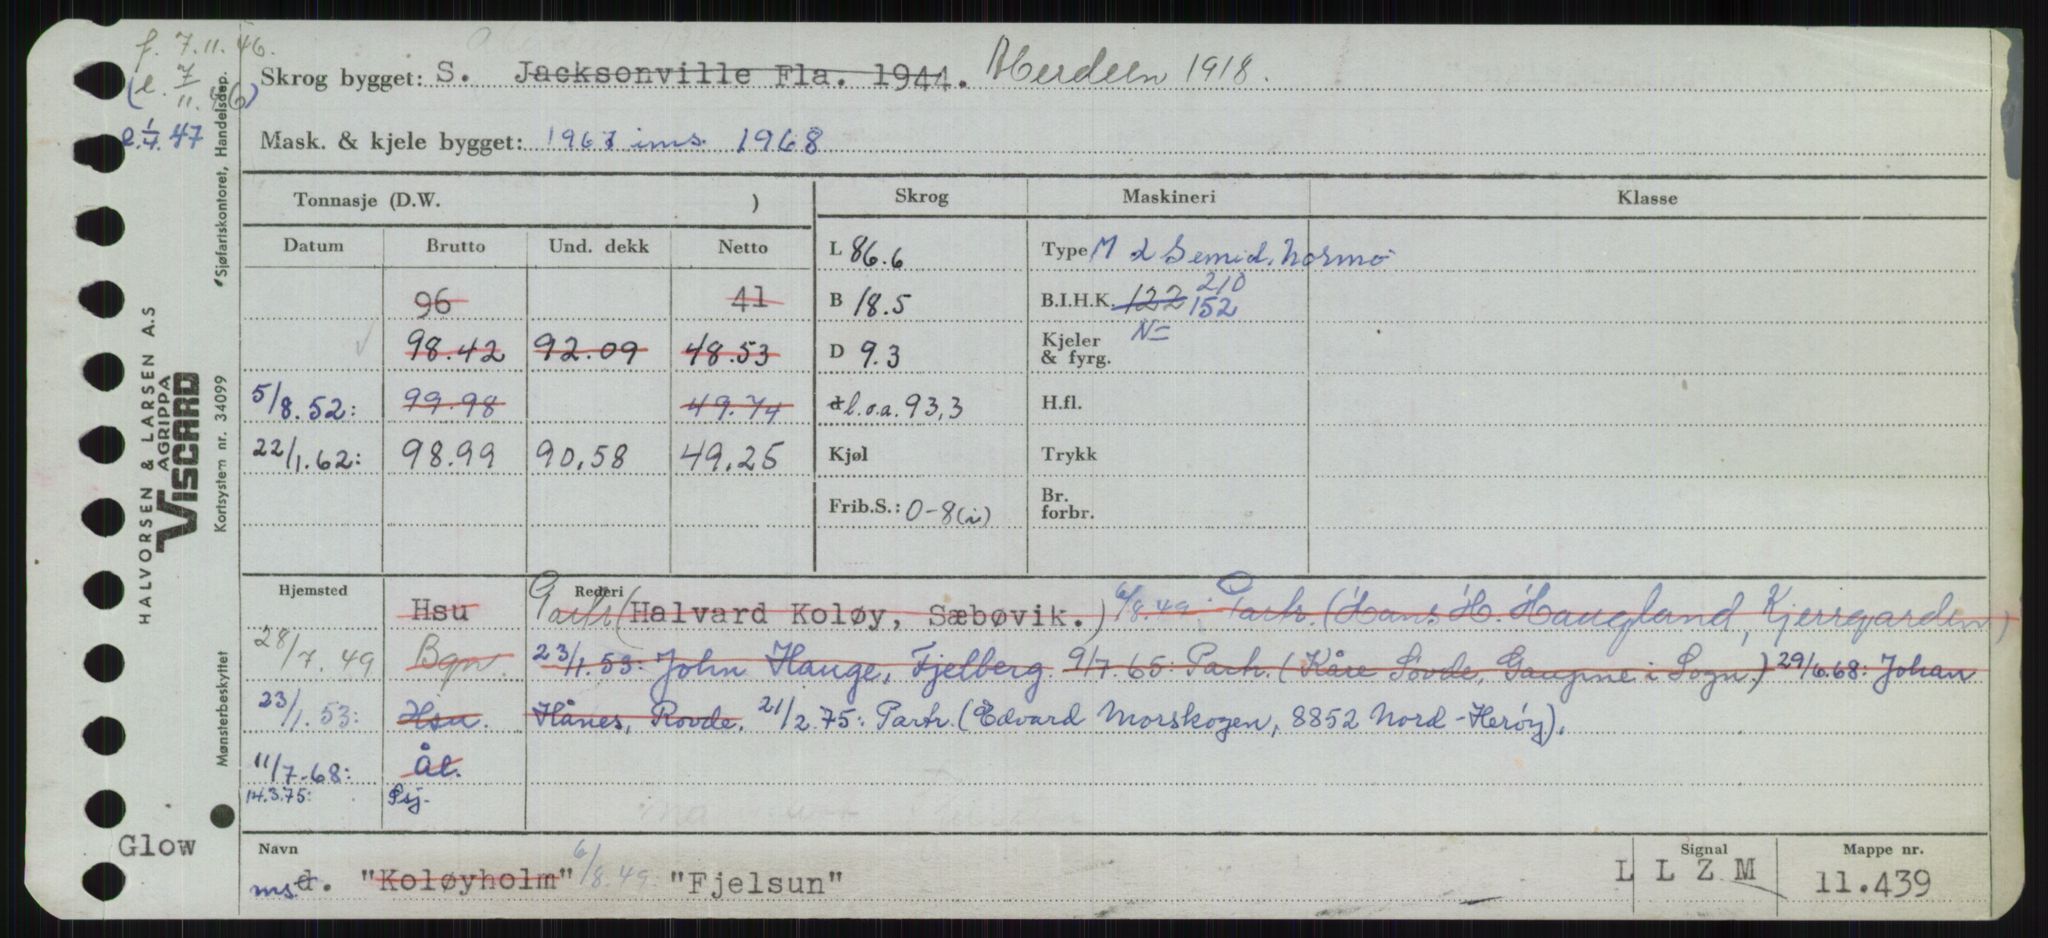 f. 7.11.46.
(e. 7/11.46)
e. 1/7. 47
Skrog bygget: S. Jacksonville Fla. 1944. Aberdeen 1918.
Mask. & kjele bygget: 1967 ins. 1968
Tonnasje (D.W. )
Skrog Maskineri Klasse
Datum Brutto Und. dekk Netto
96 41
98.42 92.09 48.53
5/8.52: 99.98 49.74
22/1.62: 98.99 90,58 49,25
L 86.6
B 18.5
D 9.3
d l.o.a. 93,3
Kjøl
Frib.S.: 0-8(i)
Type M 2 Semid. Normo
B.I.H.K. 122 152 210
Kjeler & fyrg. N=
H.fl.
Trykk
Br. forbr.
Hjemsted Rederi
Hsu Partr. (Halvard Koløy, Sæbøvik.) 6/8.49: Partr. (Hans H. Haugland, Kjerrgarden)
28/7.49 Bgn. 23/1.53: John Hauge, Fjelberg. 9/7.65: Partr. (Kåre Sovde, Gaupne i Sogn.) 29/6.68: Johan
23/1.53: Hsu. Hånes, Rovde. 21/2.75: Partr. (Edvard Morskogen, 8852 Nord-Herøy).
11/7.68: Ål.
14.3.75: Psj.
Navn
ms d. "Koløyholm" 6/8.49. "Fjelsun"
Signal
L L Z M
Mappe nr.
11.439
Glow
HALVORSEN & LARSEN A.S
AGRIPPA
VISCARD
Kortsystem nr. 34099
Sjøfartskontoret, Handelsdep.
Mønsterbeskyttet